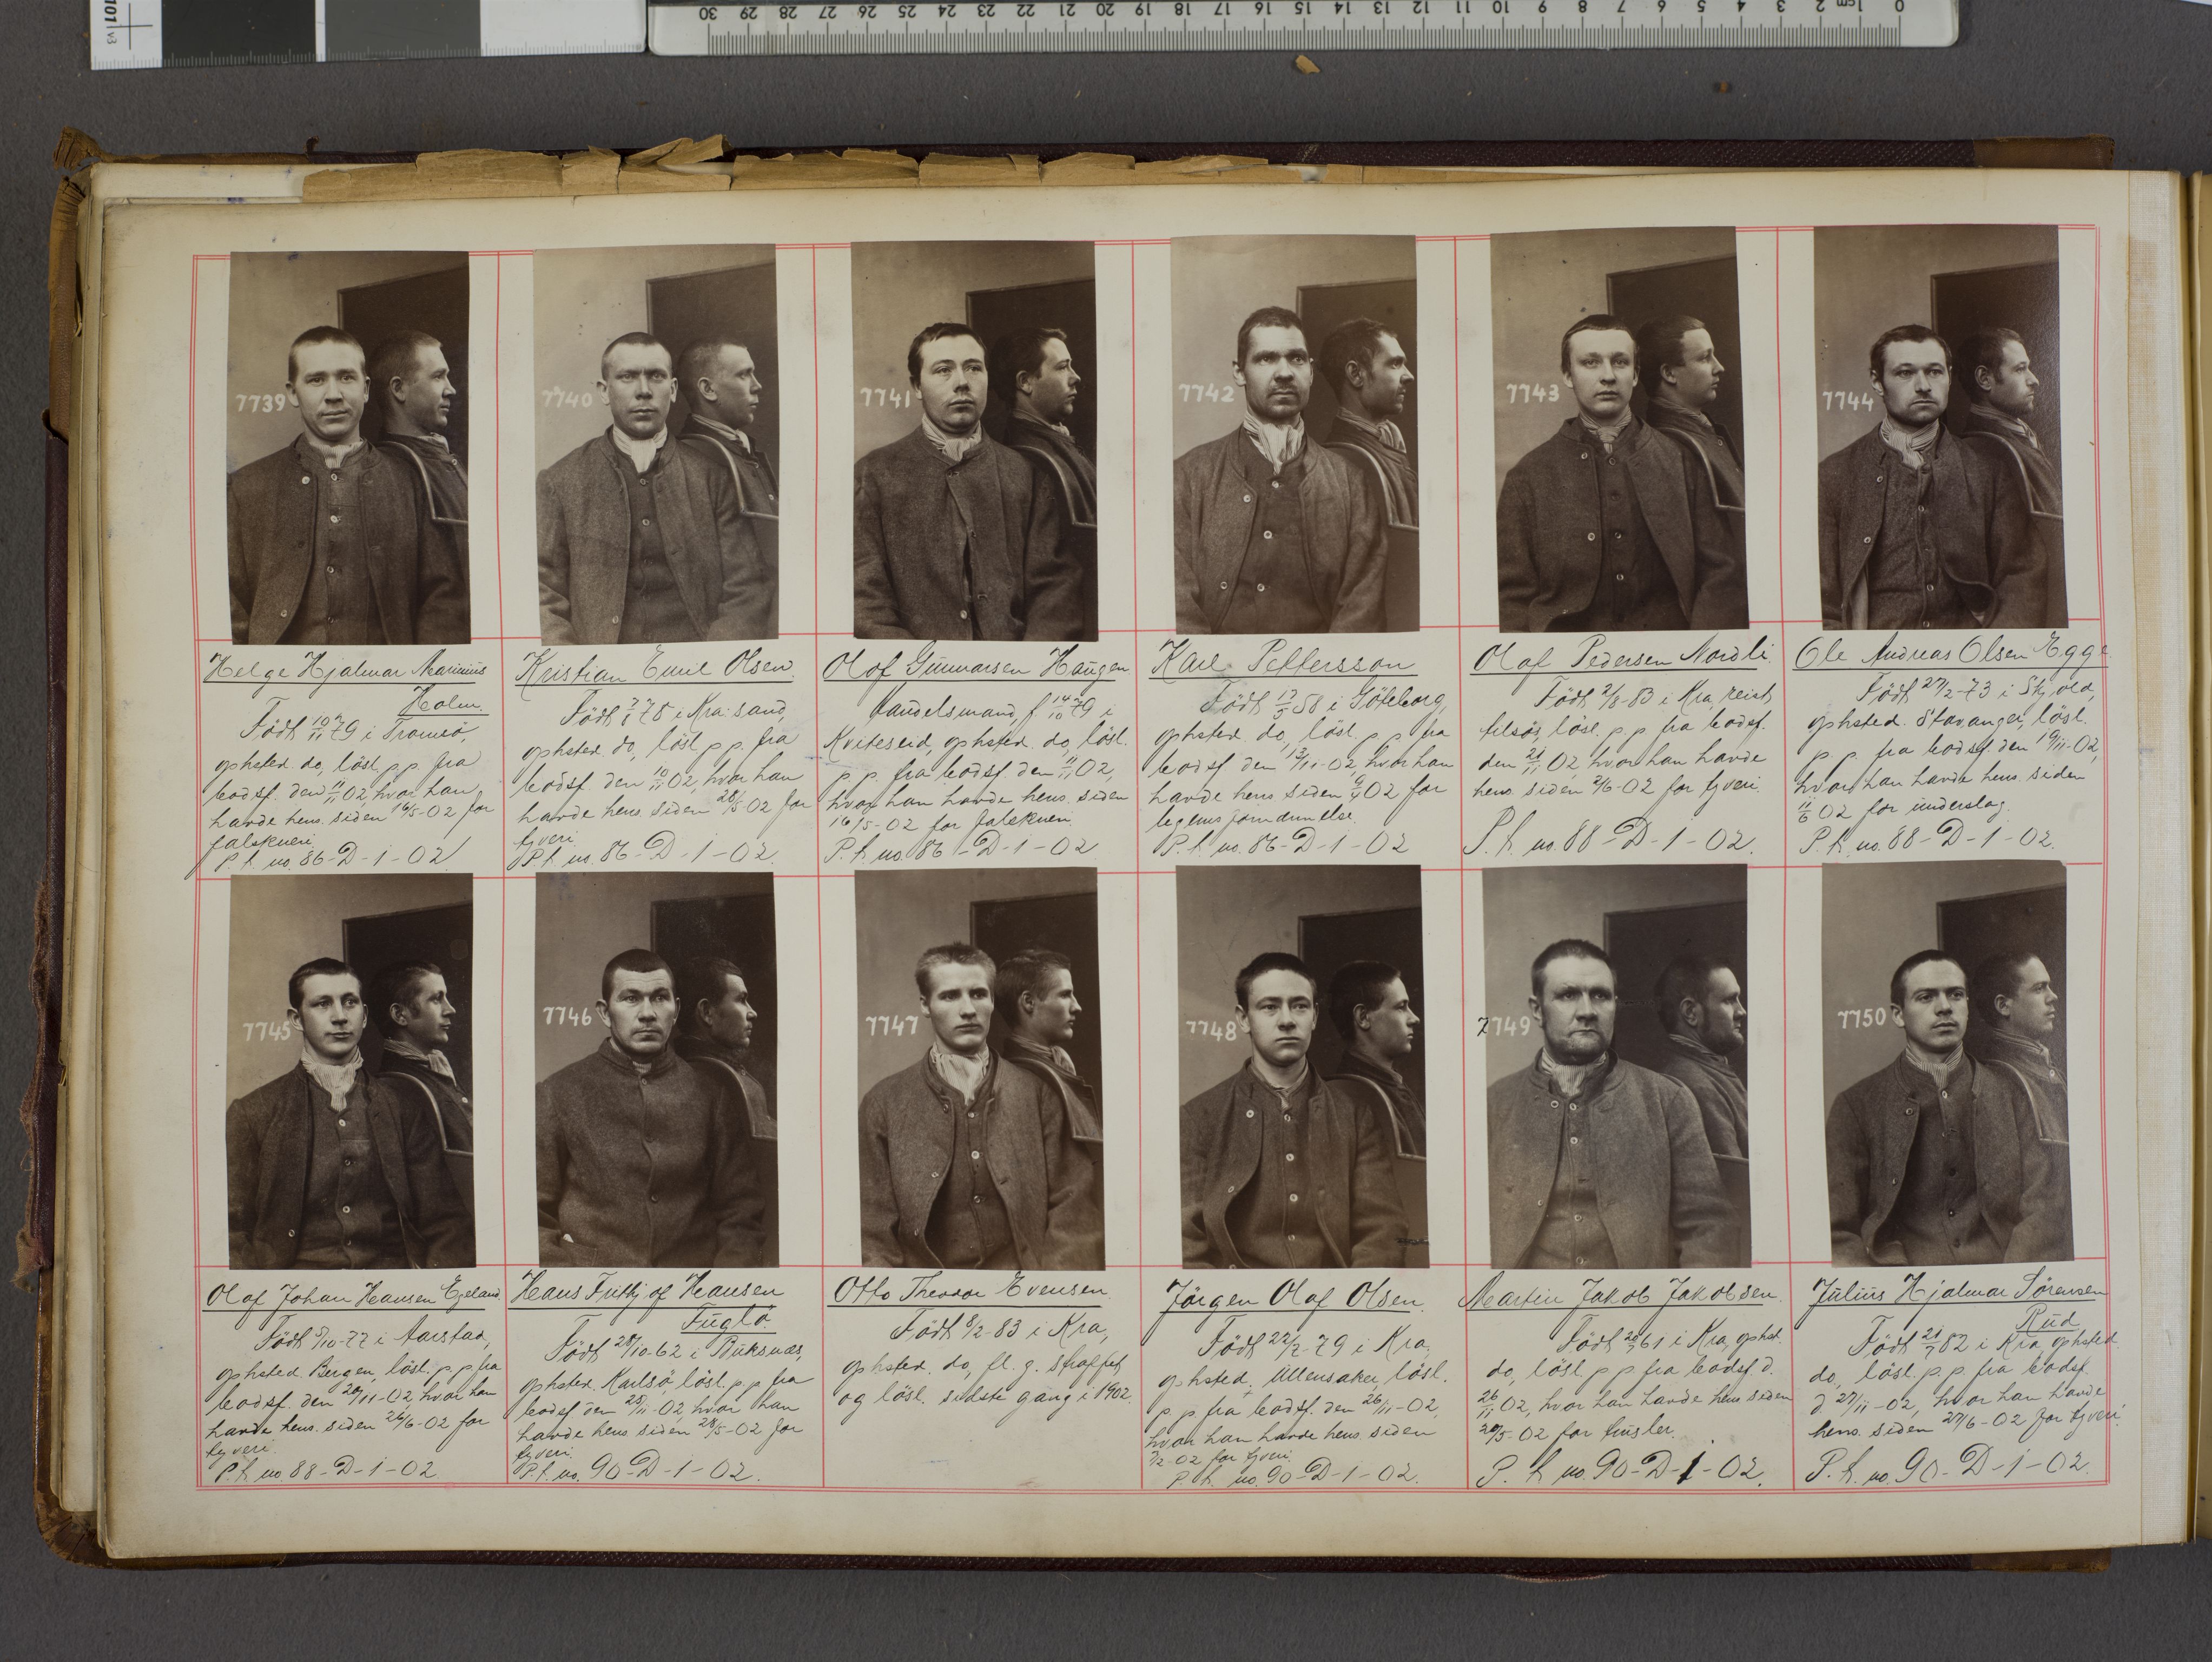 101 v3
0 1cm 2 3 4 5 6 7 8 9 10 11 12 13 14 15 16 17 18 19 20 21 22 23 24 25 26 27 28 29 30
7739
Helge Hjalmar Marinius
Holm.
Födt 10/11 79 i Tromsö,
ophsted do, lösl. p.p. fra
bodsf. den 11/11 02, hvor han
havde hens. siden 16/5-02 for
falskneri.
P. k. no. 86-D-1-02
7740
Kristian Emil Olsen.
Födt 7/1 78 i Kra:sand,
ophsted do, lösl. p.p. fra
bodsf. den 10/11 02, hvor han
havde hens. siden 28/5-02 for
tyveri.
P. k. no. 86-D-1-02.
7741
Olof Gunnarsen Haugen
Handelsmand, f. 14/10 79 i
Kviteseid, ophsted. do, lösl.
p. p. fra bodsf. den 11/11 02,
hvor han havde hens. siden
16/5-02 for falskneri.
P. k. no. 86-D-1-02
7742
Karl Pettersson
Födt 17/5 58 i Göteborg,
ophsted do, lösl. p. p. fra
bodsf. den 13/11-02, hvor han
havde hens. siden 9/4 02 for
legemsfornærmelse.
P. k. no. 86-D-1-02
7743
Olaf Pedersen Nordli.
Födt 2/8-83 i Kra, reist
tilsös, lösl. p. p. fra bodsf.
den 21/11 02 hvor han havde
hens. siden 2/6-02 for tyveri.
P. k. no. 88-D-1-02.
7744
Ole Andreas Olsen Egge
Födt 27/2-73 i Skjold,
ophsted. Stavanger, lösl.
p. p. fra bodsf. den 19/11-02,
hvor han havde hens. siden
11/6 02 for underslag.
P. k. no. 88-D-1-02.
7745
Olaf Johan Hansen Egeland.
Födt 5/10-77 i Aarstad,
ophsted. Bergen, lösl. p. p. fra
bodsf. den 20/11-02, hvor han
havde hens. siden 26/6-02 for
tyveri.
P. k. no. 88-D-1-02
7746
Hans Frithjof Hansen
Fuglö.
Födt 28/10-62 i Buksnæs,
ophsted. Karlsö, lösl. p. p. fra
bodsf. den 25/11-02, hvor han
havde hens. siden 28/5-02 for
tyveri.
P. k. no. 90-D-1-02.
7747
Otto Theodor Evensen.
Födt 8/2-83 i Kra,
ophsted. do, fl. g. straffet
og lösl. sidste gang i 1902.
7748
Jörgen Olaf Olsen.
Födt 22/2-79 i Kra,
ophsted. Ullensaker, lösl.
p. p. fra bodsf. den 26/11-02,
hvor han havde hens. siden
7/2-02 for tyveri.
P. k. no. 90-D-1-02.
7749
Martin Jakob Jakobsen.
Födt 61 i Kra, ophst.
do, lösl. p. p. fra bodsf. d.
26/11 02, hvor han havde hens. siden
20/5-02 for fusler.
P. k. no. 90-D-1-02.
7750
Julius Hjalmar Sörensen
Rud
Födt 21/7 82 i Kra, ophsted.
do, lösl. p. p. fra bodsf.
d. 27/11-02, hvor han havde
hens. siden 27/6-02 for tyveri.
P. k. no. 90-D-1-02.